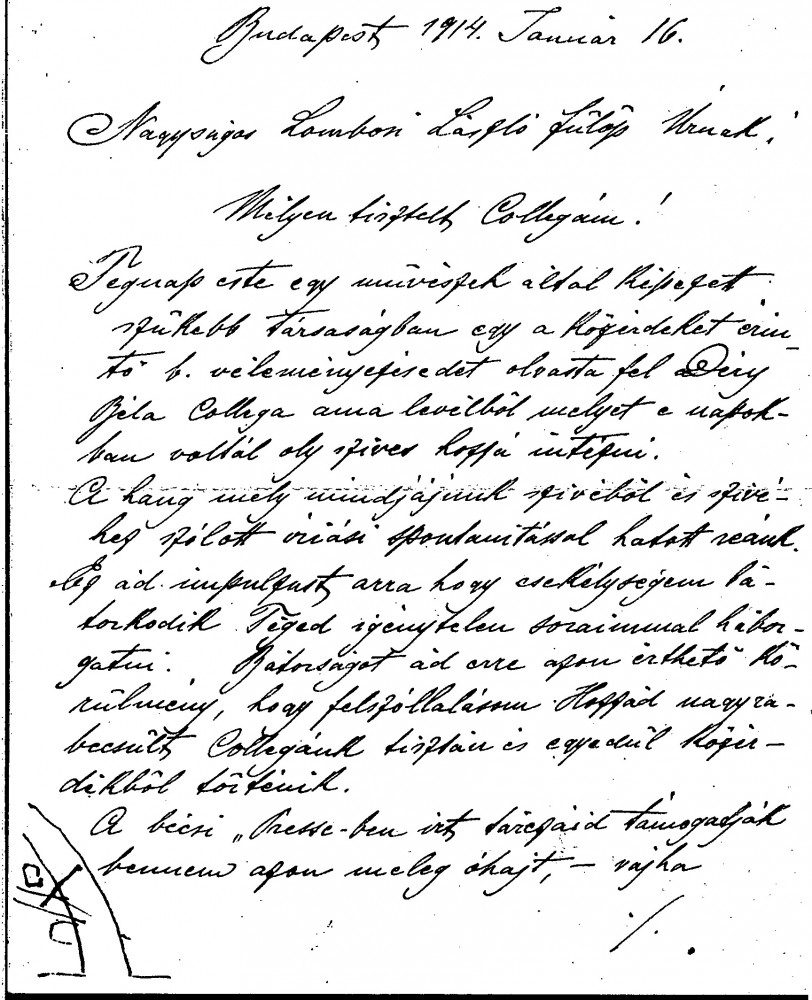 Budapest, 1914. Január 16.
Nagyságos Lombosi László Fülöp Úrnak!
Mélyen tisztelt Collegám!
Tegnap este egy művészek által képezett
szűkebb társaságban egy a közérdeket érin-
tő b. véleményezésedet olvasta fel Déry
Béla Collega ama levélből melyet e napok-
ban voltál oly szives hozzá intézni.
A hang mely mindjájunk szivéből és szivé-
hez szólott óriási spontanitással hatott reánk.
Ez ád impulzust arra hogy csekélységem bá-
torkodik Téged igénytelen soraimmal hábor-
gatni. Bátorságot ád erre azon érthető kö-
rülmény, hogy felszóllalásom Hozzád nagyra-
becsült Collegánk tisztán és egyedül közér-
dekből történik.
A bécsi „Presse-ben irt tárczáid támogatják
bennem azon meleg óhajt, – vajha
./.